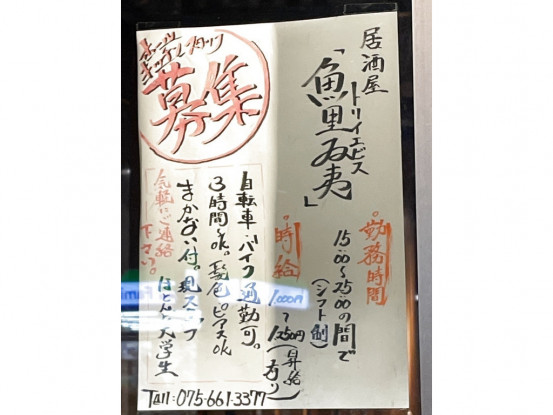 居酒屋
「魚里ゐ夷」
トリイエビス
ホール
キッチンスタッフ
募集
勤務時間
15:00〜25:00の間で
(シフト制)
時給
1,000円
〜
1,250円(昇給有り)
自転車・バイク通勤可。
3時間〜ok。髪色・ピアスok
まかない付。現スタッフ
ほとんど大学生
気軽にご連絡
下さい。
Tell:075-661-3377